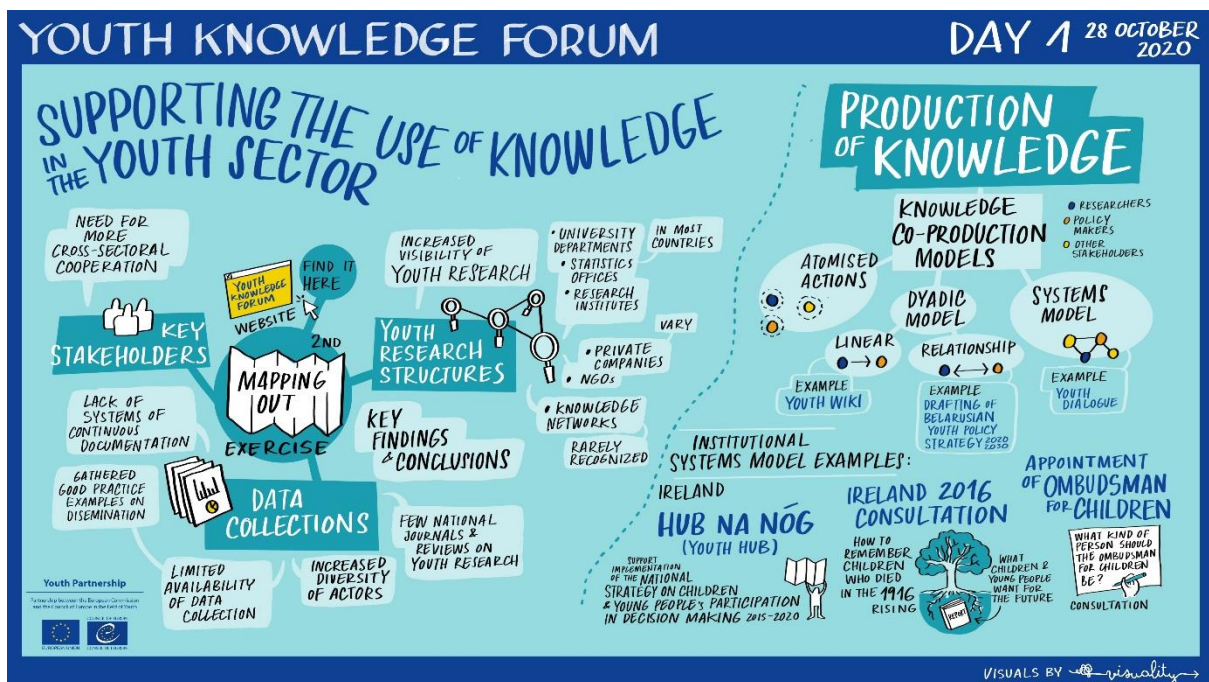 YOUTH KNOWLEDGE FORUM
DAY 1 28 OCTOBER
2020
SUPPORTING THE USE OF KNOWLEDGE
IN THE YOUTH SECTOR
NEED FOR
MORE
CROSS-SECTORAL
COOPERATION
YOUTH
KNOWLEDGE
FORUM
WEBSITE
FIND IT
HERE
KEY
STAKEHOLDERS
2ND
MAPPING
OUT
EXERCISE
INCREASED
VISIBILITY OF
YOUTH RESEARCH
YOUTH
RESEARCH
STRUCTURES
• UNIVERSITY
DEPARTMENTS
• STATISTICS
OFFICES
• RESEARCH
INSTITUTES
IN MOST
COUNTRIES
VARY
• PRIVATE
COMPANIES
• NGOs
• KNOWLEDGE
NETWORKS
RARELY
RECOGNIZED
KEY
FINDINGS
& CONCLUSIONS
LACK OF
SYSTEMS OF
CONTINUOUS
DOCUMENTATION
GATHERED
GOOD PRACTICE
EXAMPLES ON
DISEMINATION
DATA
COLLECTIONS
LIMITED
AVAILABILITY
OF DATA
COLLECTION
INCREASED
DIVERSITY
OF ACTORS
FEW NATIONAL
JOURNALS &
REVIEWS ON
YOUTH RESEARCH
Youth Partnership
Partnership between the European Commission
and the Council of Europe in the field of Youth
EUROPEAN UNION
COUNCIL OF EUROPE
CONSEIL DE L'EUROPE
PRODUCTION
OF KNOWLEDGE
KNOWLEDGE
CO-PRODUCTION
MODELS
RESEARCHERS
POLICY
MAKERS
OTHER
STAKEHOLDERS
ATOMISED
ACTIONS
DYADIC
MODEL
SYSTEMS
MODEL
LINEAR
RELATIONSHIP
EXAMPLE
YOUTH WIKI
EXAMPLE
DRAFTING OF
BELARUSIAN
YOUTH POLICY
STRATEGY 2020
2030
EXAMPLE
YOUTH
DIALOGUE
INSTITUTIONAL
SYSTEMS MODEL EXAMPLES:
IRELAND
HUB NA NÓG
(YOUTH HUB)
SUPPORT
IMPLEMENTATION
OF THE NATIONAL
STRATEGY ON CHILDREN
& YOUNG PEOPLE'S PARTICIPATION
IN DECISION MAKING 2015-2020
IRELAND 2016
CONSULTATION
HOW TO
REMEMBER
CHILDREN
WHO DIED
IN THE 1916
RISING
REPORT
WHAT
CHILDREN &
YOUNG PEOPLE
WANT FOR
THE FUTURE
APPOINTMENT
OF OMBUDSMAN
FOR CHILDREN
WHAT KIND OF
PERSON SHOULD
THE OMBUDSMAN
FOR CHILDREN
BE?
CONSULTATION
VISUALS BY visuality